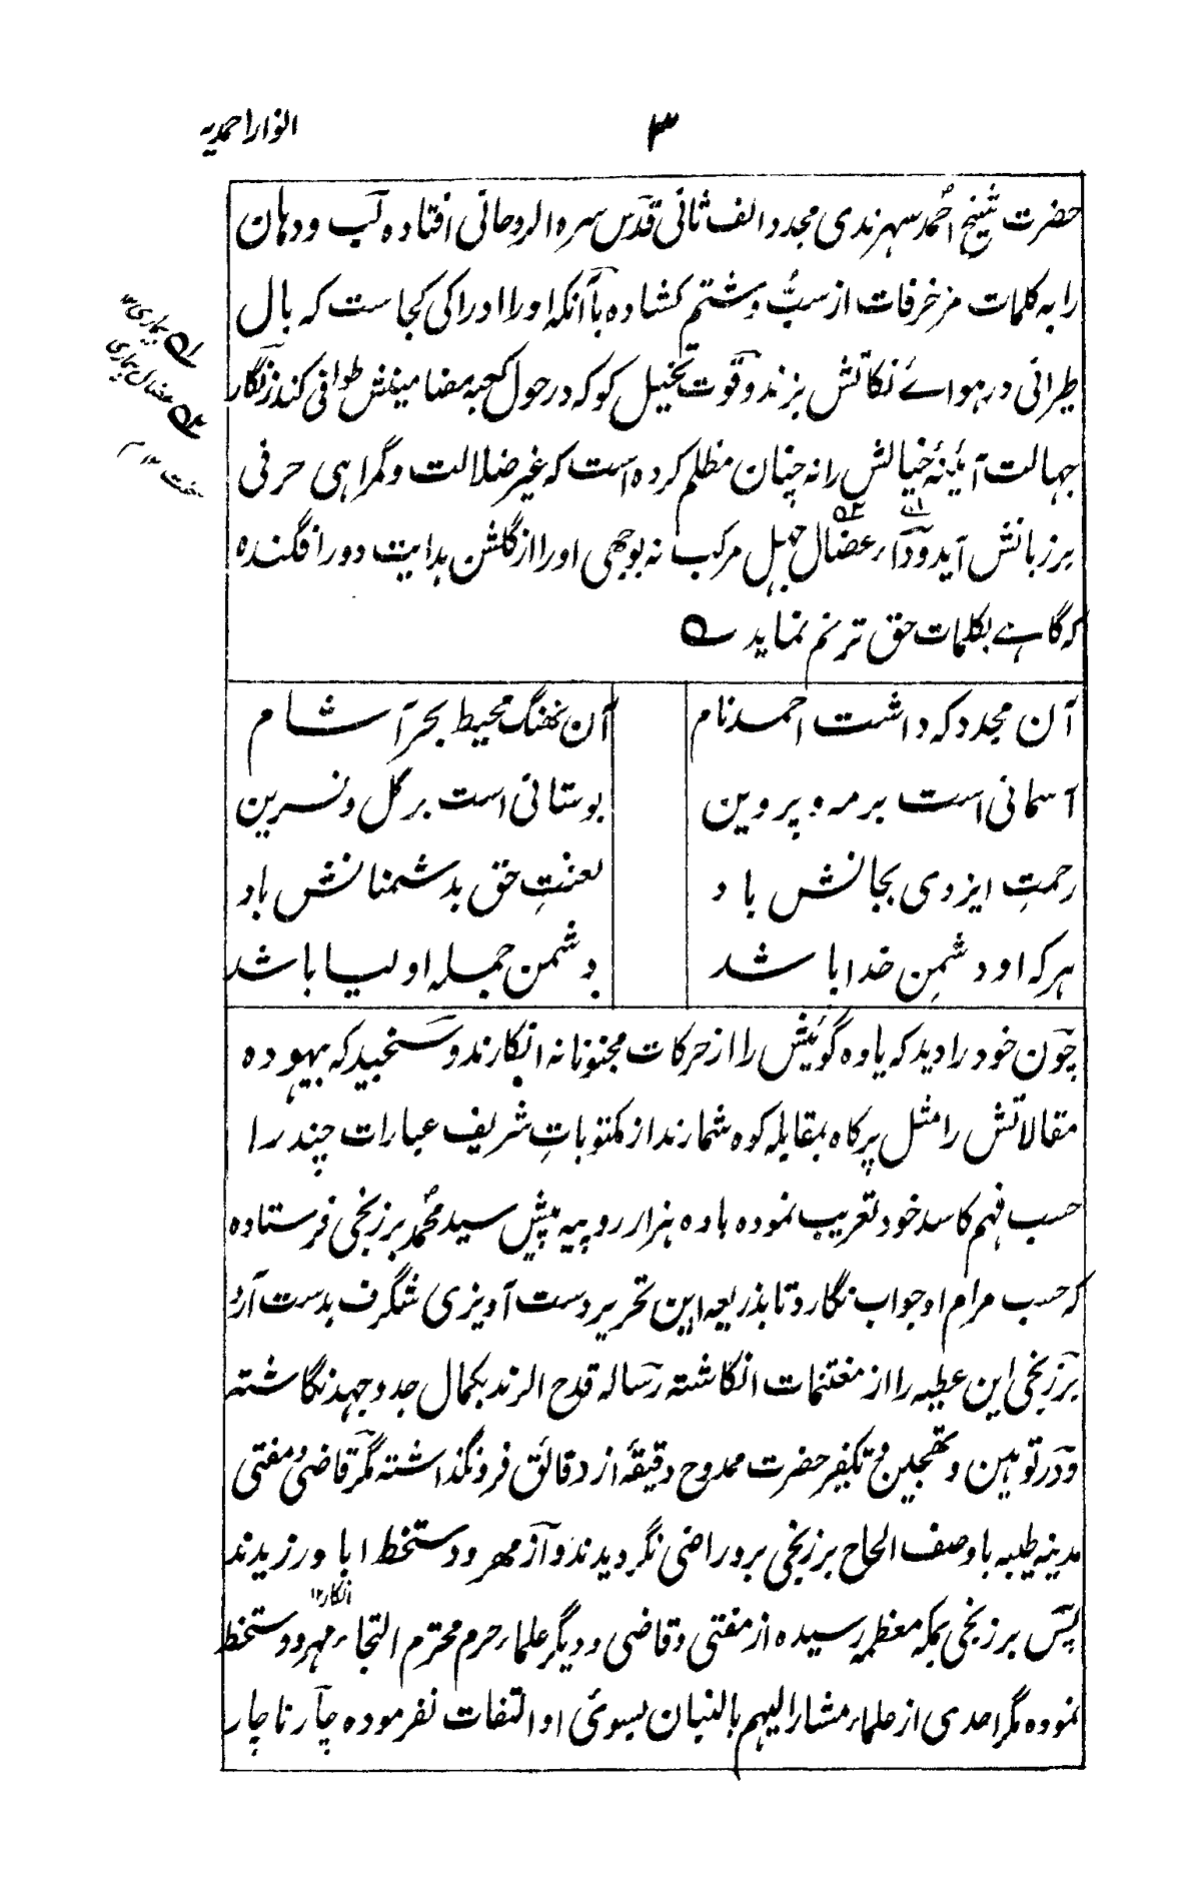 انوار احمدیہ
۳
حضرت شیخ احمد سہرندی مجدد الف ثانی قدس سرہ الروحانی افتادہ لب و دہان
را بہ کلمات مزخرفات از سب و شتم کشادہ با آنکہ او را ادراکی کجاست کہ بال
طیرانی در ہوائے نکاتش بزند و قوت تخیل کو کہ در حول کعبہ مضامینش طوافی کند زنگار
جہالت آئینۂ خیالش را نہ چنان مظلم کردہ است کہ غیر ضلالت و گمراہی حرفی
بر زبانش آید و داء عضال جہل مرکب نہ بوجہی او را از گلشن ہدایت دور افگندہ
کہ گاہے بکلمات حق ترنم نماید
آن مجدد کہ داشت احمد نام
آن نھنگ محیط بحر آشام
آسمانی است بر مہ و پروین
بوستانی است بر گل و نسرین
رحمتِ ایزدی بجانش باد
لعنتِ حق بدشمنانش باد
ہر کہ او دشمنِ خدا باشد
دشمن جملہ اولیا باشد
چون خود را دید کہ یاوہ گوئیش را از حرکات مجنونانہ انکارند و سنجید کہ بیہودہ
مقالاتش را مثل پر کاہ بمقابلہ کوہ شمارند از مکتوباتِ شریف عبارات چند را
حسب فہم کاسد خود تعریب نمودہ با دہ ہزار روپیہ پیش سید محمد برزنجی فرستادہ
کہ حسب مرام او جواب نگارد تا بذریعہ این تحریر دست آویزی شگرف بدست آرد
برزنجی این عطیہ را از مغتنمات انگاشتہ رسالہ قدح الزند بکمال جد و جہد نگاشتہ
و در توہین و تھجین و تکفیر حضرت ممدوح دقیقۂ از دقائق فرونگذاشتہ مگر قاضی و مفتی
مدینہ طیبہ با وصف الحاح برزنجی برو راضی نگردیدند و از مھر و دستخط ابا ورزیدند
انکار۱۲
پس برزنجی بمکہ معظمہ رسیدہ از مفتی و قاضی و دیگر علماء حرم محترم التجاء مہر و دستخط
نمودہ مگر احدی از علماء مشار الیہم بالبنان بسوئی او التفات نفرمودہ چار ناچار